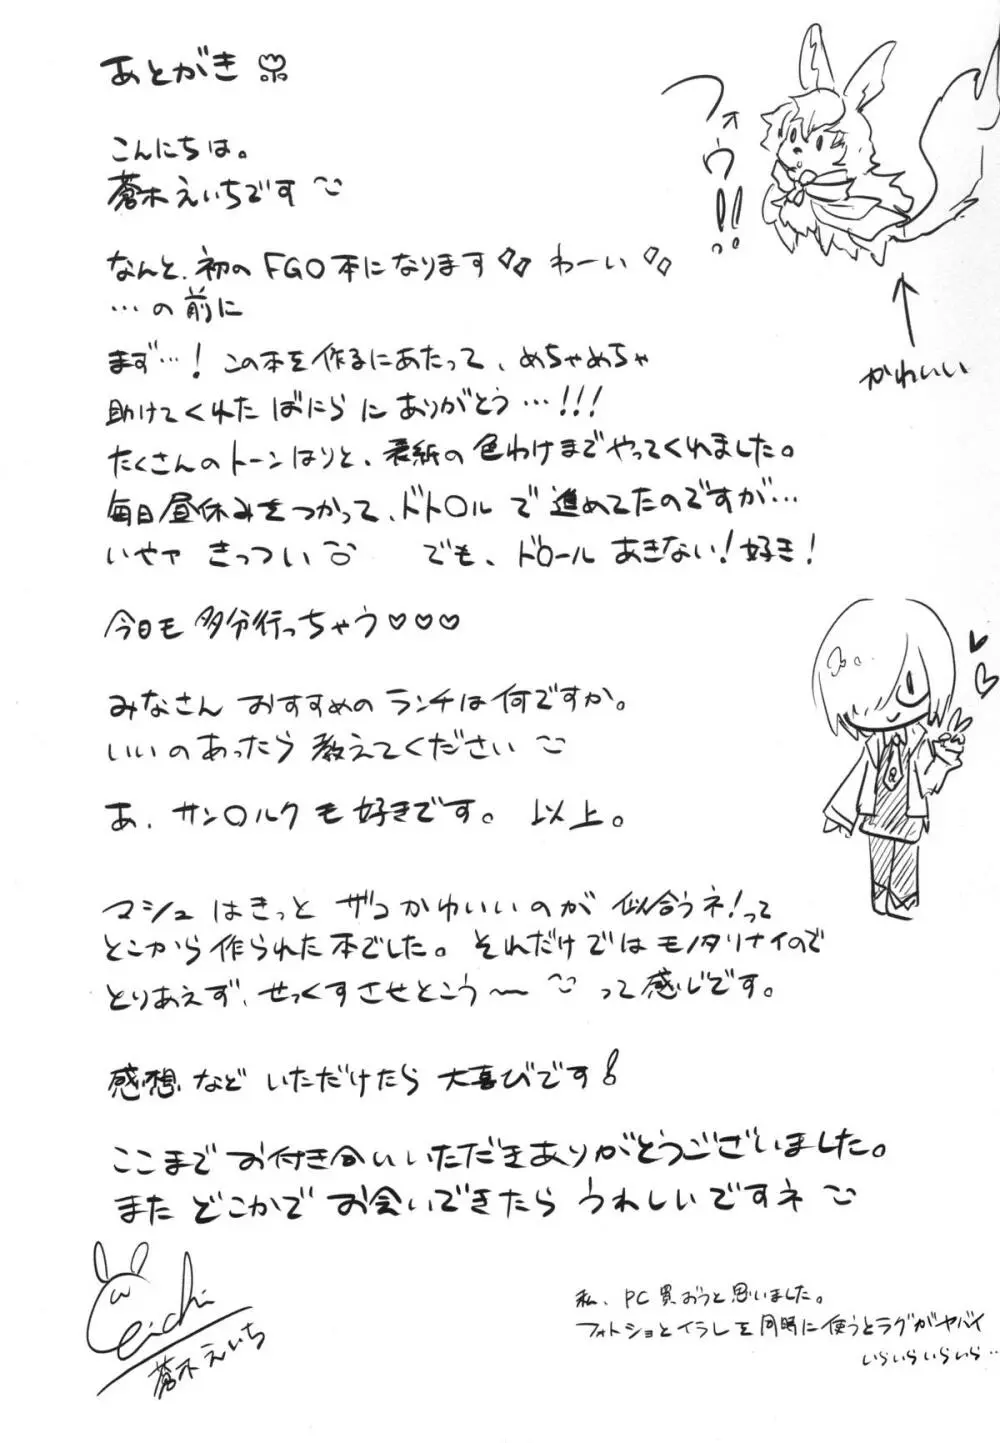 あとがき
フォーウ!!
こんにちは。
蒼木えいちです
なんと、初のFGO本になります わーい
…の前に
かわいい
まず…!この本を作るにあたって、めちゃめちゃ
助けてくれた ばにら に ありがとう…!!!
たくさんのトーンはりと、表紙の色わけまでやってくれました。
毎日昼休みをつかって、ドト○ルで進めてたのですが…
いやァ きっつい でも、ド○ール あきない!好き!
今日も多分行っちゃう♡♡♡
みなさん おすすめの ランチは何ですか。
いいのあったら 教えてください
あ、サン○ルクも好きです。 以上。
マシュ はきっと ザコかわいいのが 似合うネ!って
とこから作られた本でした。それだけではモノタリナイので
とりあえず、せっくすさせとこう〜 って感じです。
感想など いただけたら 大喜びです!
ここまで お付き合いいただきありがとうございました。
また どこかで お会いできたら うれしいですネ
eichi
蒼木えいち
私、PC買おうと思いました。
フォトショとイラレを同時に使うとラグがヤバイ
いらいらいらいら…